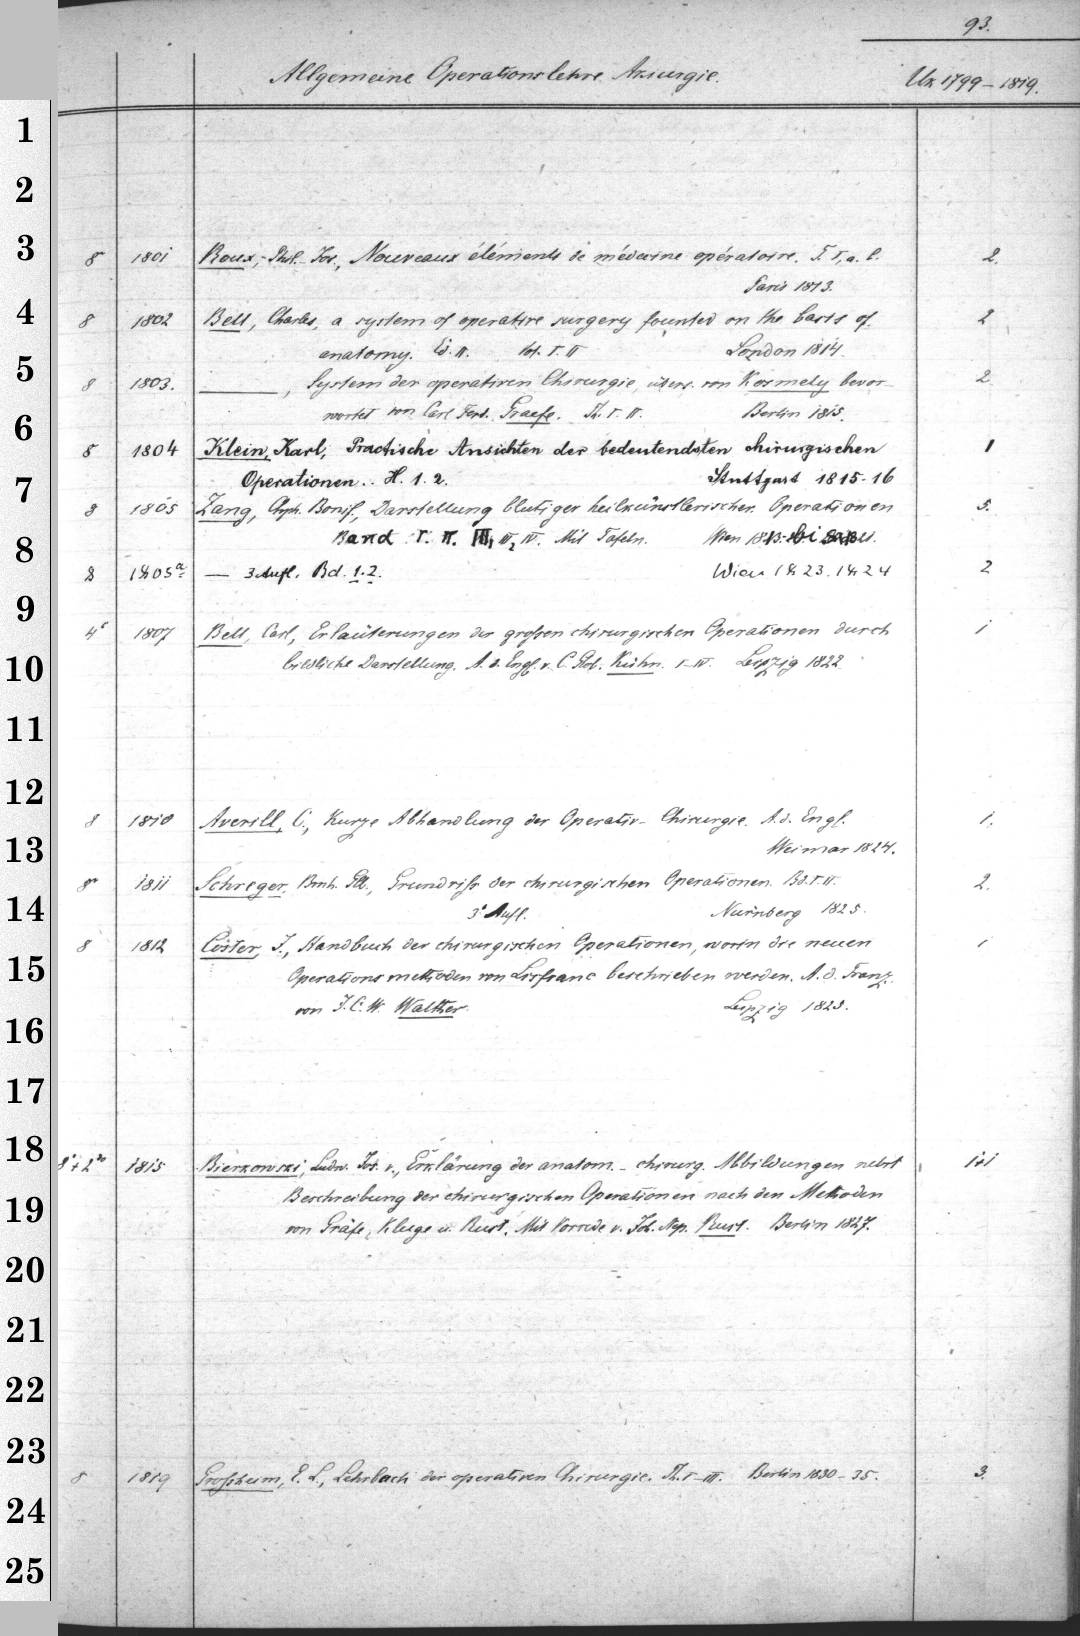 93.
Allgemeine Operationslehre Akiurgie. Ux 1799-1819.
1
2
3
8 1801 Roux, Phil. Jos., Nouveaux éléments de médecine opératoire. T. I, a. b. 2.
Paris 1813.
4
8 1802 Bell, Charles, a system of operative surgery founted on the basis of 2
anatomy. Ed. II. Vol. I. II London 1814.
5
8 1803. ———, System der operativen Chirurgie, übers. von Kosmely bevor- 2.
6
wortet von Carl Ferd. Graefe. Th. I. II. Berlin 1815.
8 1804 Klein, Karl, Practische Ansichten der bedeutendsten chirurgischen 1
7
Operationen.. H. 1. 2. Stuttgart 1815-16
8 1805 Zang, Chph. Bonif., Darstellung blutiger heilkünstlerischer Operationen 5.
8
Band I. II. III,1 III,2 IV. Mit Tafeln. Wien 1813- bis
8 1805a — 3 Aufl. Bd. 1. 2. Wien 1823. 1824 2
9
4° 1807 Bell, Carl, Erläuterungen der großen chirurgischen Operationen durch 1
10
bildliche Darstellung. A. d. Engl. v. C. Glob. Kühn. I-IV. Leipzig 1822.
11
12
8 1810 Averill, C., Kurze Abhandlung der Operativ-Chirurgie. A. d. Engl. 1.
13
Weimar 1824.
8° 1811 Schreger, Bernh. Glb., Grundriß der chirurgischen Operationen. Bd. I. II. 2.
14
3e Aufl. Nürnberg 1825.
8 1812 Coster, J., Handbuch der chirurgischen Operationen, worin die neuen 1
15
Operationsmethoden von Lisfranc beschrieben werden. A. d. Franz.
16
von J. C. W. Walther. Leipzig 1825.
17
18
8°+2° 1815 Bierkowski, Ludw. Jos. v., Erklärung der anatom.-chirurg. Abbildungen nebst 1+1
19
Beschreibung der chirurgischen Operationen nach den Methoden
von Gräfe, Kluge u. Rust. Mit Vorrede v. Joh. Nep. Rust. Berlin 1827.
20
21
22
23
8 1819 Großheim, E. L., Lehrbuch der operativen Chirurgie. Th. I-III. Berlin 1830-35. 3.
24
25